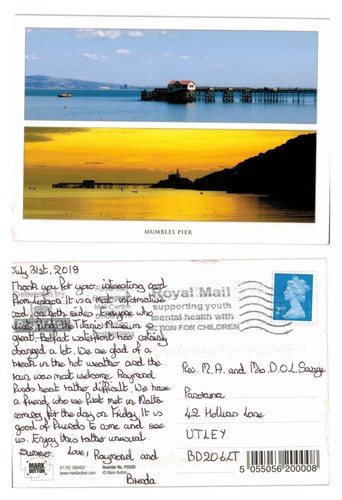 MUMBLES PIER
July 31st, 2018
Thank you for your interesting card
from Lodges. It is a most informative
card, on both sides. Everyone who
visits finds the Titanic Museum is
great. Belfast waterfront has certainly
changed a lot. We are glad of a
break in the hot weather and the
rain was most welcome. Raymond
finds heat rather difficult. We have
a friend, who we first met in Malta
coming for the day on Friday. It is
good of friends to come and see
us. Enjoy this rather unusual
summer. Love, Raymond and
Brenda
Royal Mail
supporting youth
mental health with
ACTION FOR CHILDREN
2nd
Rev. M. A. and Mrs. D.O.L. Savage
Panorama
42 Hollins Lane
UTLEY
BD20 6LT
MARK
BUTTON
01792 390402
Reorder No. PD030
www.markbutton.com
© Mark Button
5 055056 200008